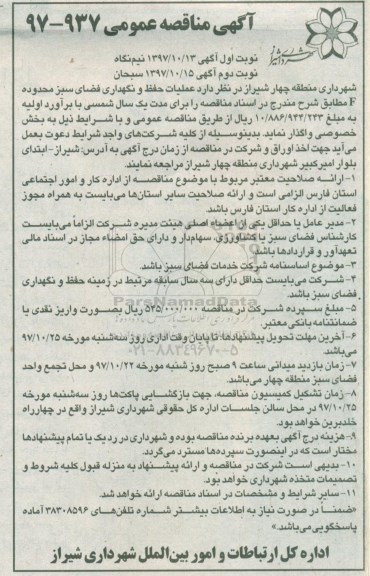 آگهی مناقصه عمومی ۹۳۷-۹۷
نوبت اول آگهی ۱۳۹۷/۱۰/۱۳ نیم‌نگاه
نوبت دوم آگهی ۱۳۹۷/۱۰/۱۵ سبحان
شهرداری شیراز
شهرداری منطقه چهار شیراز در نظر دارد عملیات حفظ و نگهداری فضای سبز محدوده
F مطابق شرح مندرج در اسناد مناقصه را برای مدت یک سال شمسی با برآورد اولیه
به مبلغ ۱۰/۸۸۶/۹۴۳/۲۳۳ ریال از طریق مناقصه عمومی و با شرایط ذیل به بخش
خصوصی واگذار نماید. بدینوسیله از کلیه شرکت‌های واجد شرایط دعوت بعمل
می‌آید جهت اخذ اوراق و شرکت در مناقصه از زمان درج آگهی به آدرس: شیراز-ابتدای
بلوار امیرکبیر شهرداری منطقه چهار شیراز مراجعه نمایند.
۱-ارائه صلاحیت معتبر مربوط با موضوع مناقصه از اداره کار و امور اجتماعی
استان فارس الزامی است و ارائه صلاحیت سایر استان‌ها می‌بایست به همراه مجوز
فعالیت از اداره کار استان فارس باشد.
۲-مدیر عامل یا حداقل یکی از اعضاء اصلی هیئت مدیره شرکت الزاماً می‌بایست
کارشناس فضای سبز یا کشاورزی، سهام‌دار و دارای حق امضاء مجاز در اسناد مالی
تعهدآور و قراردادها باشد.
۳-موضوع اساسنامه شرکت خدمات فضای سبز باشد.
۴-شرکت می‌بایست حداقل دارای سه سال سابقه مرتبط در زمینه حفظ و نگهداری
فضای سبز باشد.
۵-مبلغ سپرده شرکت در مناقصه ۵۴۵/۰۰۰/۰۰۰ ریال بصورت واریز نقدی یا
ضمانتنامه بانکی معتبر.
۶-آخرین مهلت تحویل پیشنهادها: تا پایان وقت اداری روز سه‌شنبه مورخه ۹۷/۱۰/۲۵
می‌باشد.
۷-زمان بازدید میدانی ساعت ۹ صبح روز شنبه مورخه ۹۷/۱۰/۲۲ و محل تجمع واحد
فضای سبز منطقه چهار می‌باشد.
۸-زمان تشکیل کمیسیون مناقصه، جهت بازگشایی پاکت‌ها روز سه‌شنبه مورخه
۹۷/۱۰/۲۵ در محل سالن جلسات اداره کل حقوقی شهرداری شیراز واقع در چهارراه
خلدبرین خواهد بود.
۹-هزینه درج آگهی بعهده برنده مناقصه بوده و شهرداری در رد یک یا تمام پیشنهادها
مختار است که در اینصورت سپرده‌ها مسترد می‌گردد.
۱۰-بدیهی است شرکت در مناقصه و ارائه پیشنهاد به منزله قبول کلیه شروط و
تصمیمات متخذه شهرداری خواهد بود.
۱۱-سایر شرایط و مشخصات در اسناد مناقصه ارائه خواهد شد.
«ضمناً در صورت نیاز به اطلاعات بیشتر شماره تلفن‌های ۳۸۳۰۸۵۹۶ آماده
پاسخگویی می‌باشد.»
اداره کل ارتباطات و امور بین‌الملل شهرداری شیراز
ParsNamadData
۰۲۱-۸۸۳۴۹۶۷۰-۵